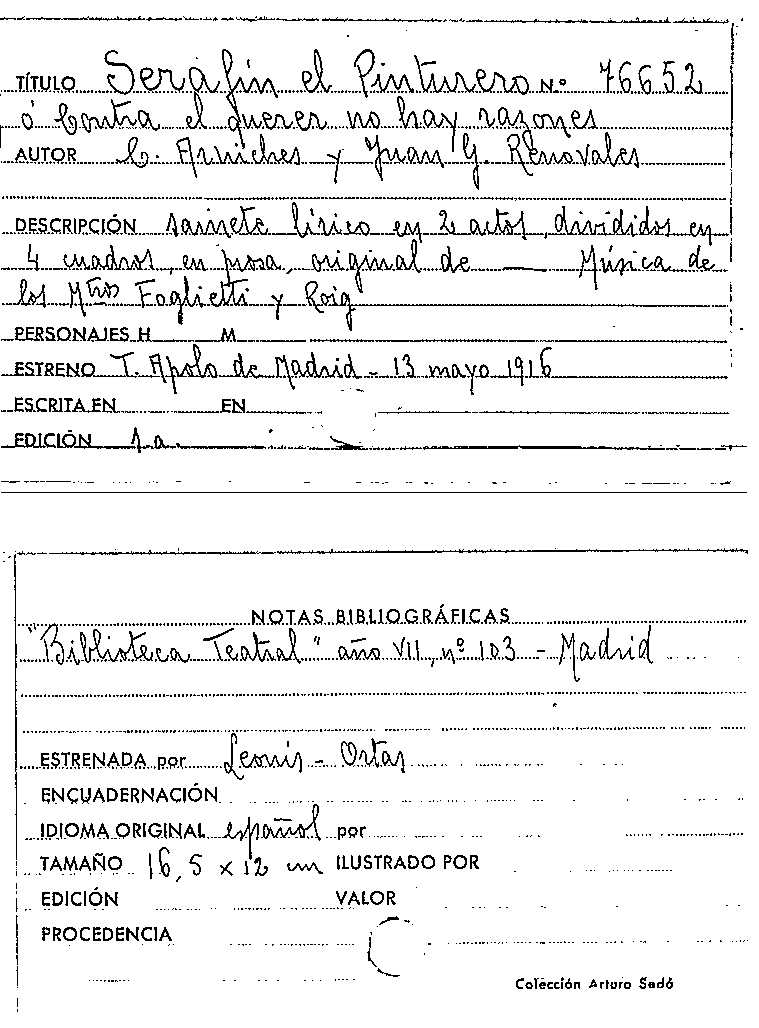 TÍTULO Serafín el Pinturero N.º 76652
ó Contra el querer no hay razones
AUTOR C. Arniches y Juan G. Renovales
DESCRIPCIÓN sainete lírico en 2 actos, divididos en
4 cuadros, en prosa, original de — Música de
los Mtros Foglietti y Roig
PERSONAJES H M
ESTRENO T. Apolo de Madrid - 13 mayo 1916
ESCRITA EN EN
EDICIÓN s.a.
NOTAS BIBLIOGRÁFICAS
"Biblioteca Teatral" año VII, nº 103 - Madrid
ESTRENADA por Leonís - Ortas
ENCUADERNACIÓN
IDIOMA ORIGINAL español por
TAMAÑO 16,5 x 12 cm ILUSTRADO POR
EDICIÓN VALOR
PROCEDENCIA
Colección Arturo Sedó